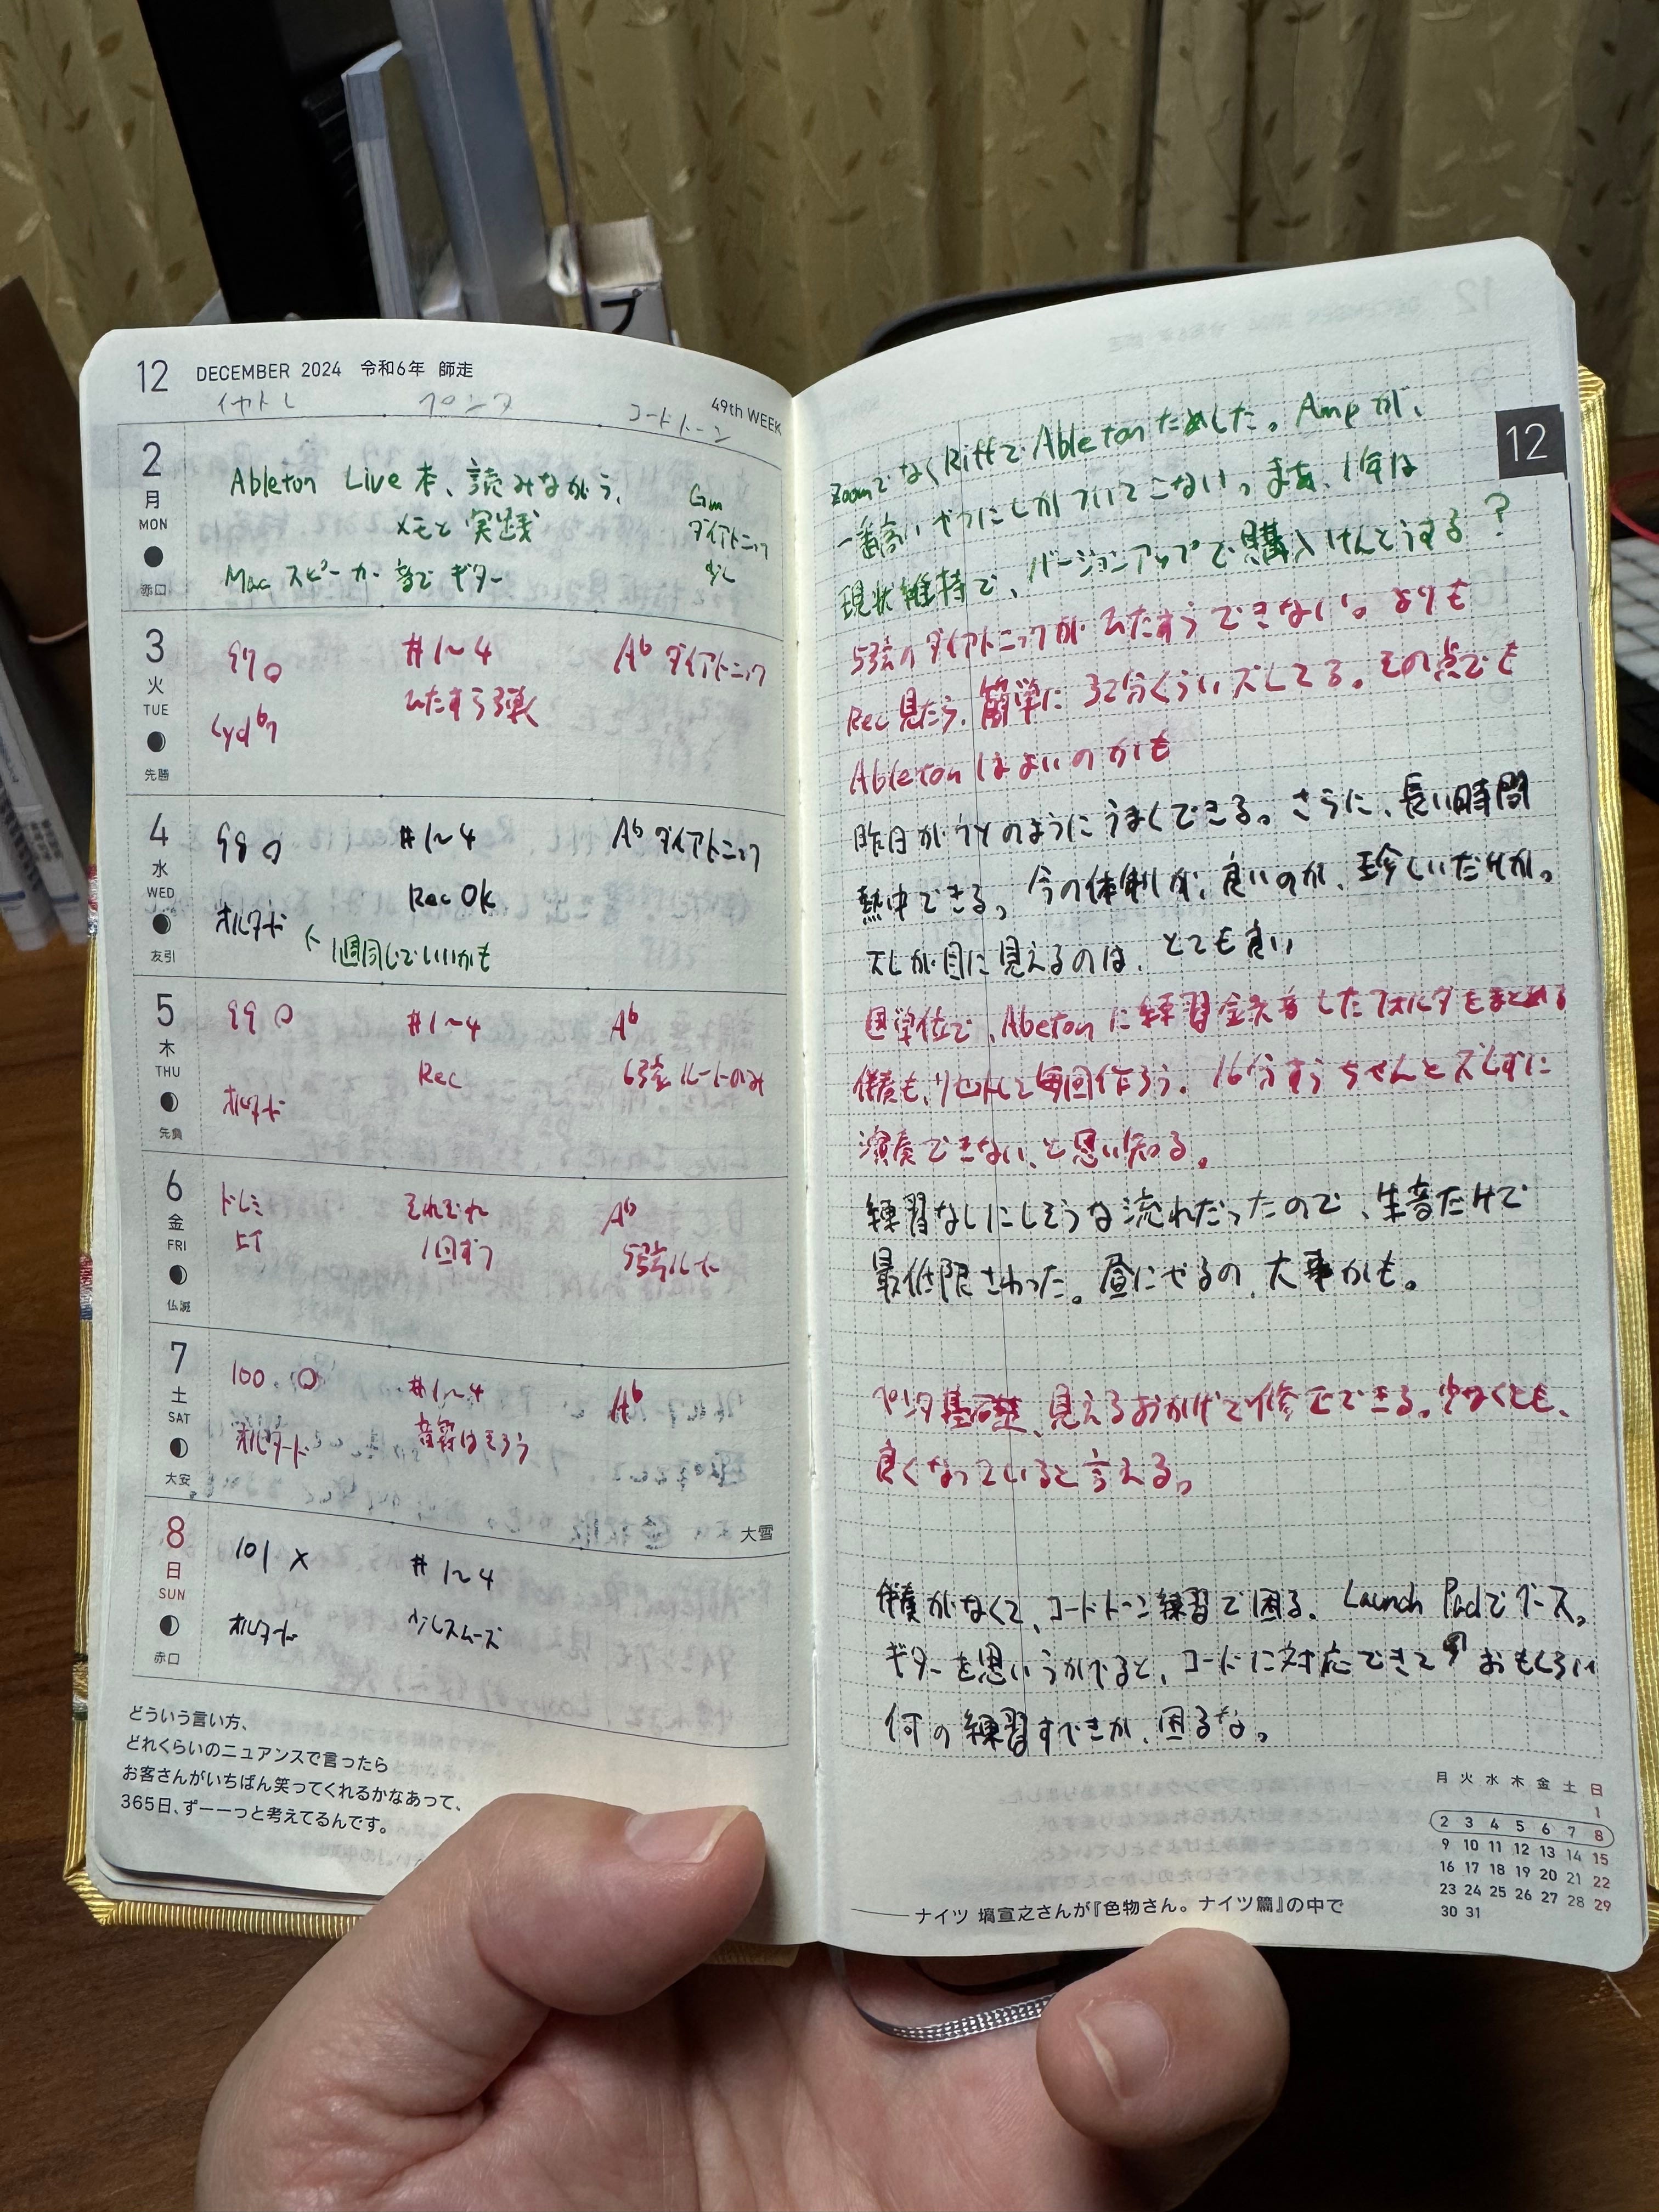 プ
12 DECEMBER 2024 令和6年 師走
イヤトレ ペンタ コードトーン
49th WEEK
2 月 MON 赤口
Ableton Live 本、読みながら、
メモと実践
Mac スピーカー 音で ギター
Gm
ダイアトニック
少し
3 火 TUE 先勝
97○ #1~4 A♭ ダイアトニック
Lyd♭7 ひたすら弾く
4 水 WED 友引
98○ #1~4 A♭ ダイアトニック
Rec Ok
オルタード ← 1週同じでいいかも
5 木 THU 先負
99○ #1~4 A♭
Rec 6弦ルートのみ
オルタード
6 金 FRI 仏滅
ドレミ それぞれ A♭
1回ずつ 5弦ルート
7 土 SAT 大安
100.○ #1~4 A♭
オルタード 音符はそろう
大雪
8 日 SUN 赤口
101 × #1~4
オルタード 少しスムーズ
どういう言い方、
どれくらいのニュアンスで言ったら
お客さんがいちばん笑ってくれるかなあって、
365日、ずーーっと考えてるんです。
12
ZoomでなくRiffでAbletonためした。Ampが、
一番高いやつにしかついてこない。まあ、1年は
現状維持で、バージョンアップで購入けんとうする?
5弦のダイアトニックがひたすらできない。よりも
Rec見たら、簡単に32分くらいズレてる。その点でも
Ableton はよいのかも
昨日がウソのようにうまくできる。さらに、長い時間
熱中できる。今の体制が、良いのか、珍しいだけか。
ズレが目に見えるのは、とても良い
週単位で、Abetonに練習 したフォルダをまとめる
伴奏も、リセットして毎回作ろう。16分すらちゃんとズレずに
演奏できない、と思い知る。
練習なしにしそうな流れだったので、生音だけで
最低限さわった。昼にやるの、大事かも。
ペンタ基礎、見えるおかげで修正できる。少なくとも、
良くなっていると言える。
伴奏がなくて、コードトーン練習で困る。Launch Padでベース。
ギターを思いうかべると、コードに対応できて おもしろい
何の練習すべきか、困るな。
月 火 水 木 金 土 日
1
2 3 4 5 6 7 8
9 10 11 12 13 14 15
16 17 18 19 20 21 22
23 24 25 26 27 28 29
30 31
ナイツ 塙宣之さんが『色物さん。ナイツ篇』の中で